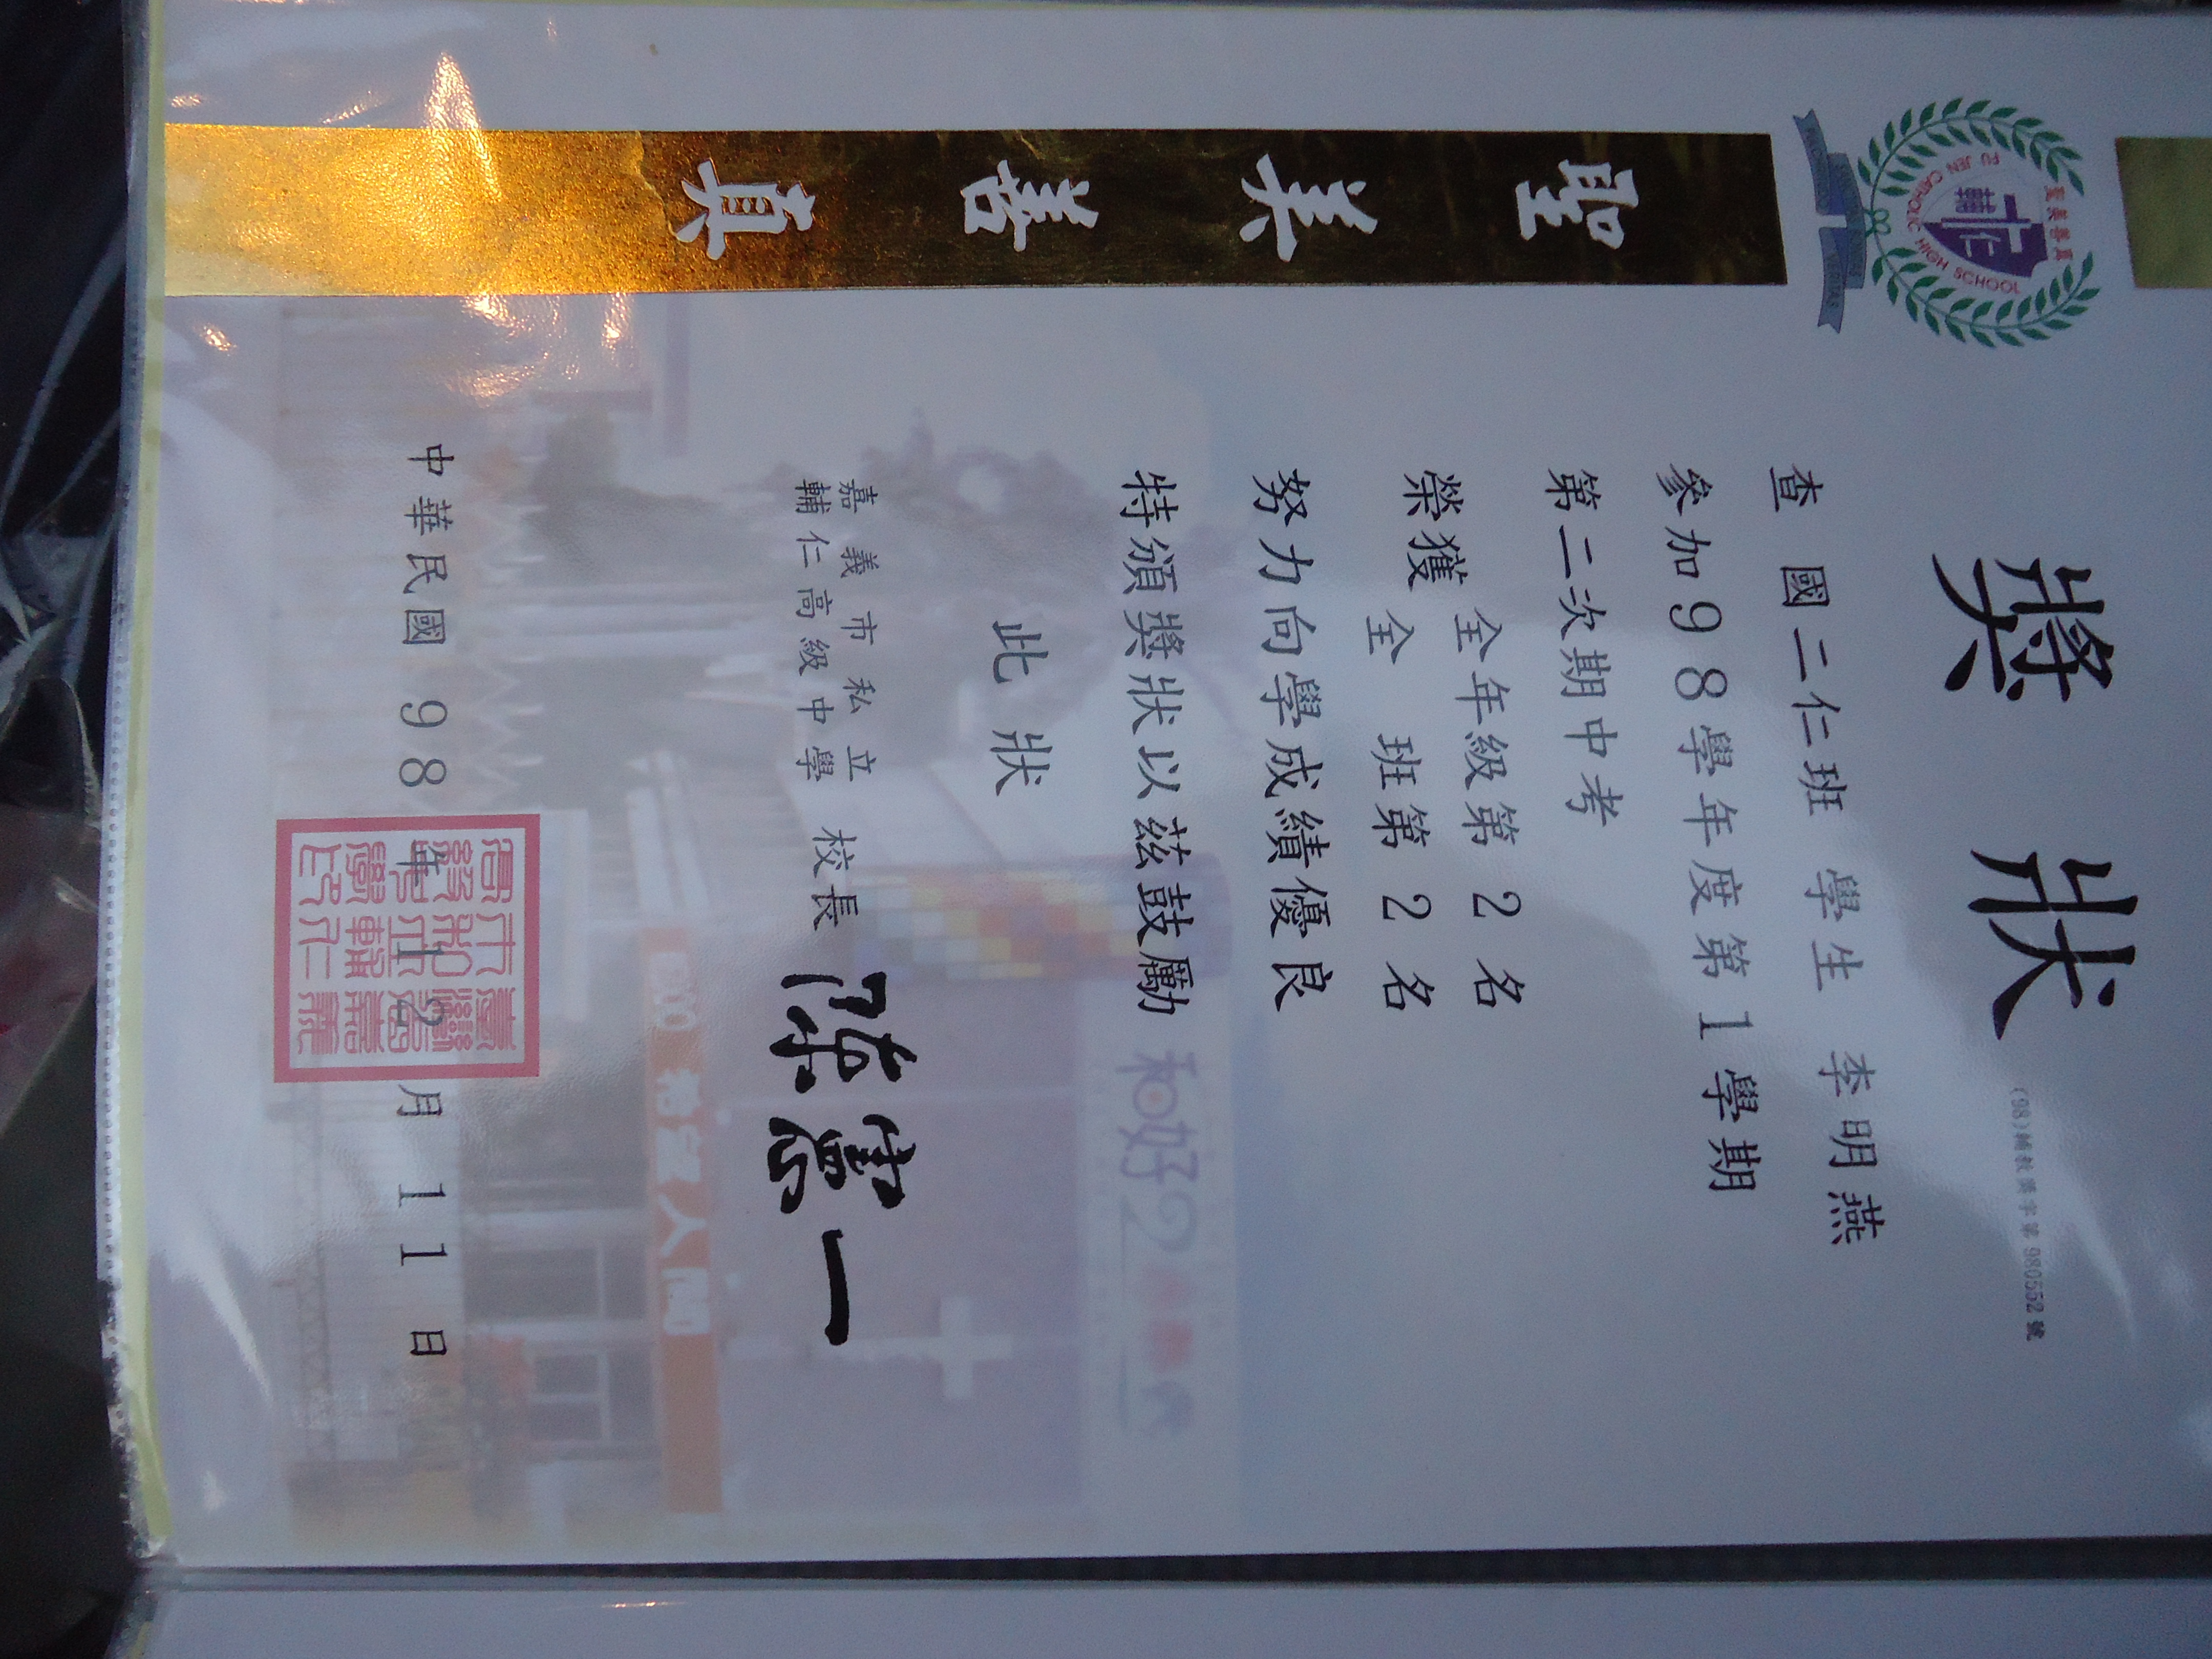 獎狀
(98)輔教獎字第980552號
查 國二仁班 學生 李明燕
參加98學年度第1學期
第二次期中考
榮獲 全年級第 2 名
全 班第 2 名
努力向學成績優良
特頒獎狀以茲鼓勵
此狀
嘉義市私立
輔仁高級中學
校長
中華民國 98 年 12 月 11 日
聖美善真
聖美善真
輔仁
FU JEN CATHOLIC HIGH SCHOOL
和好2